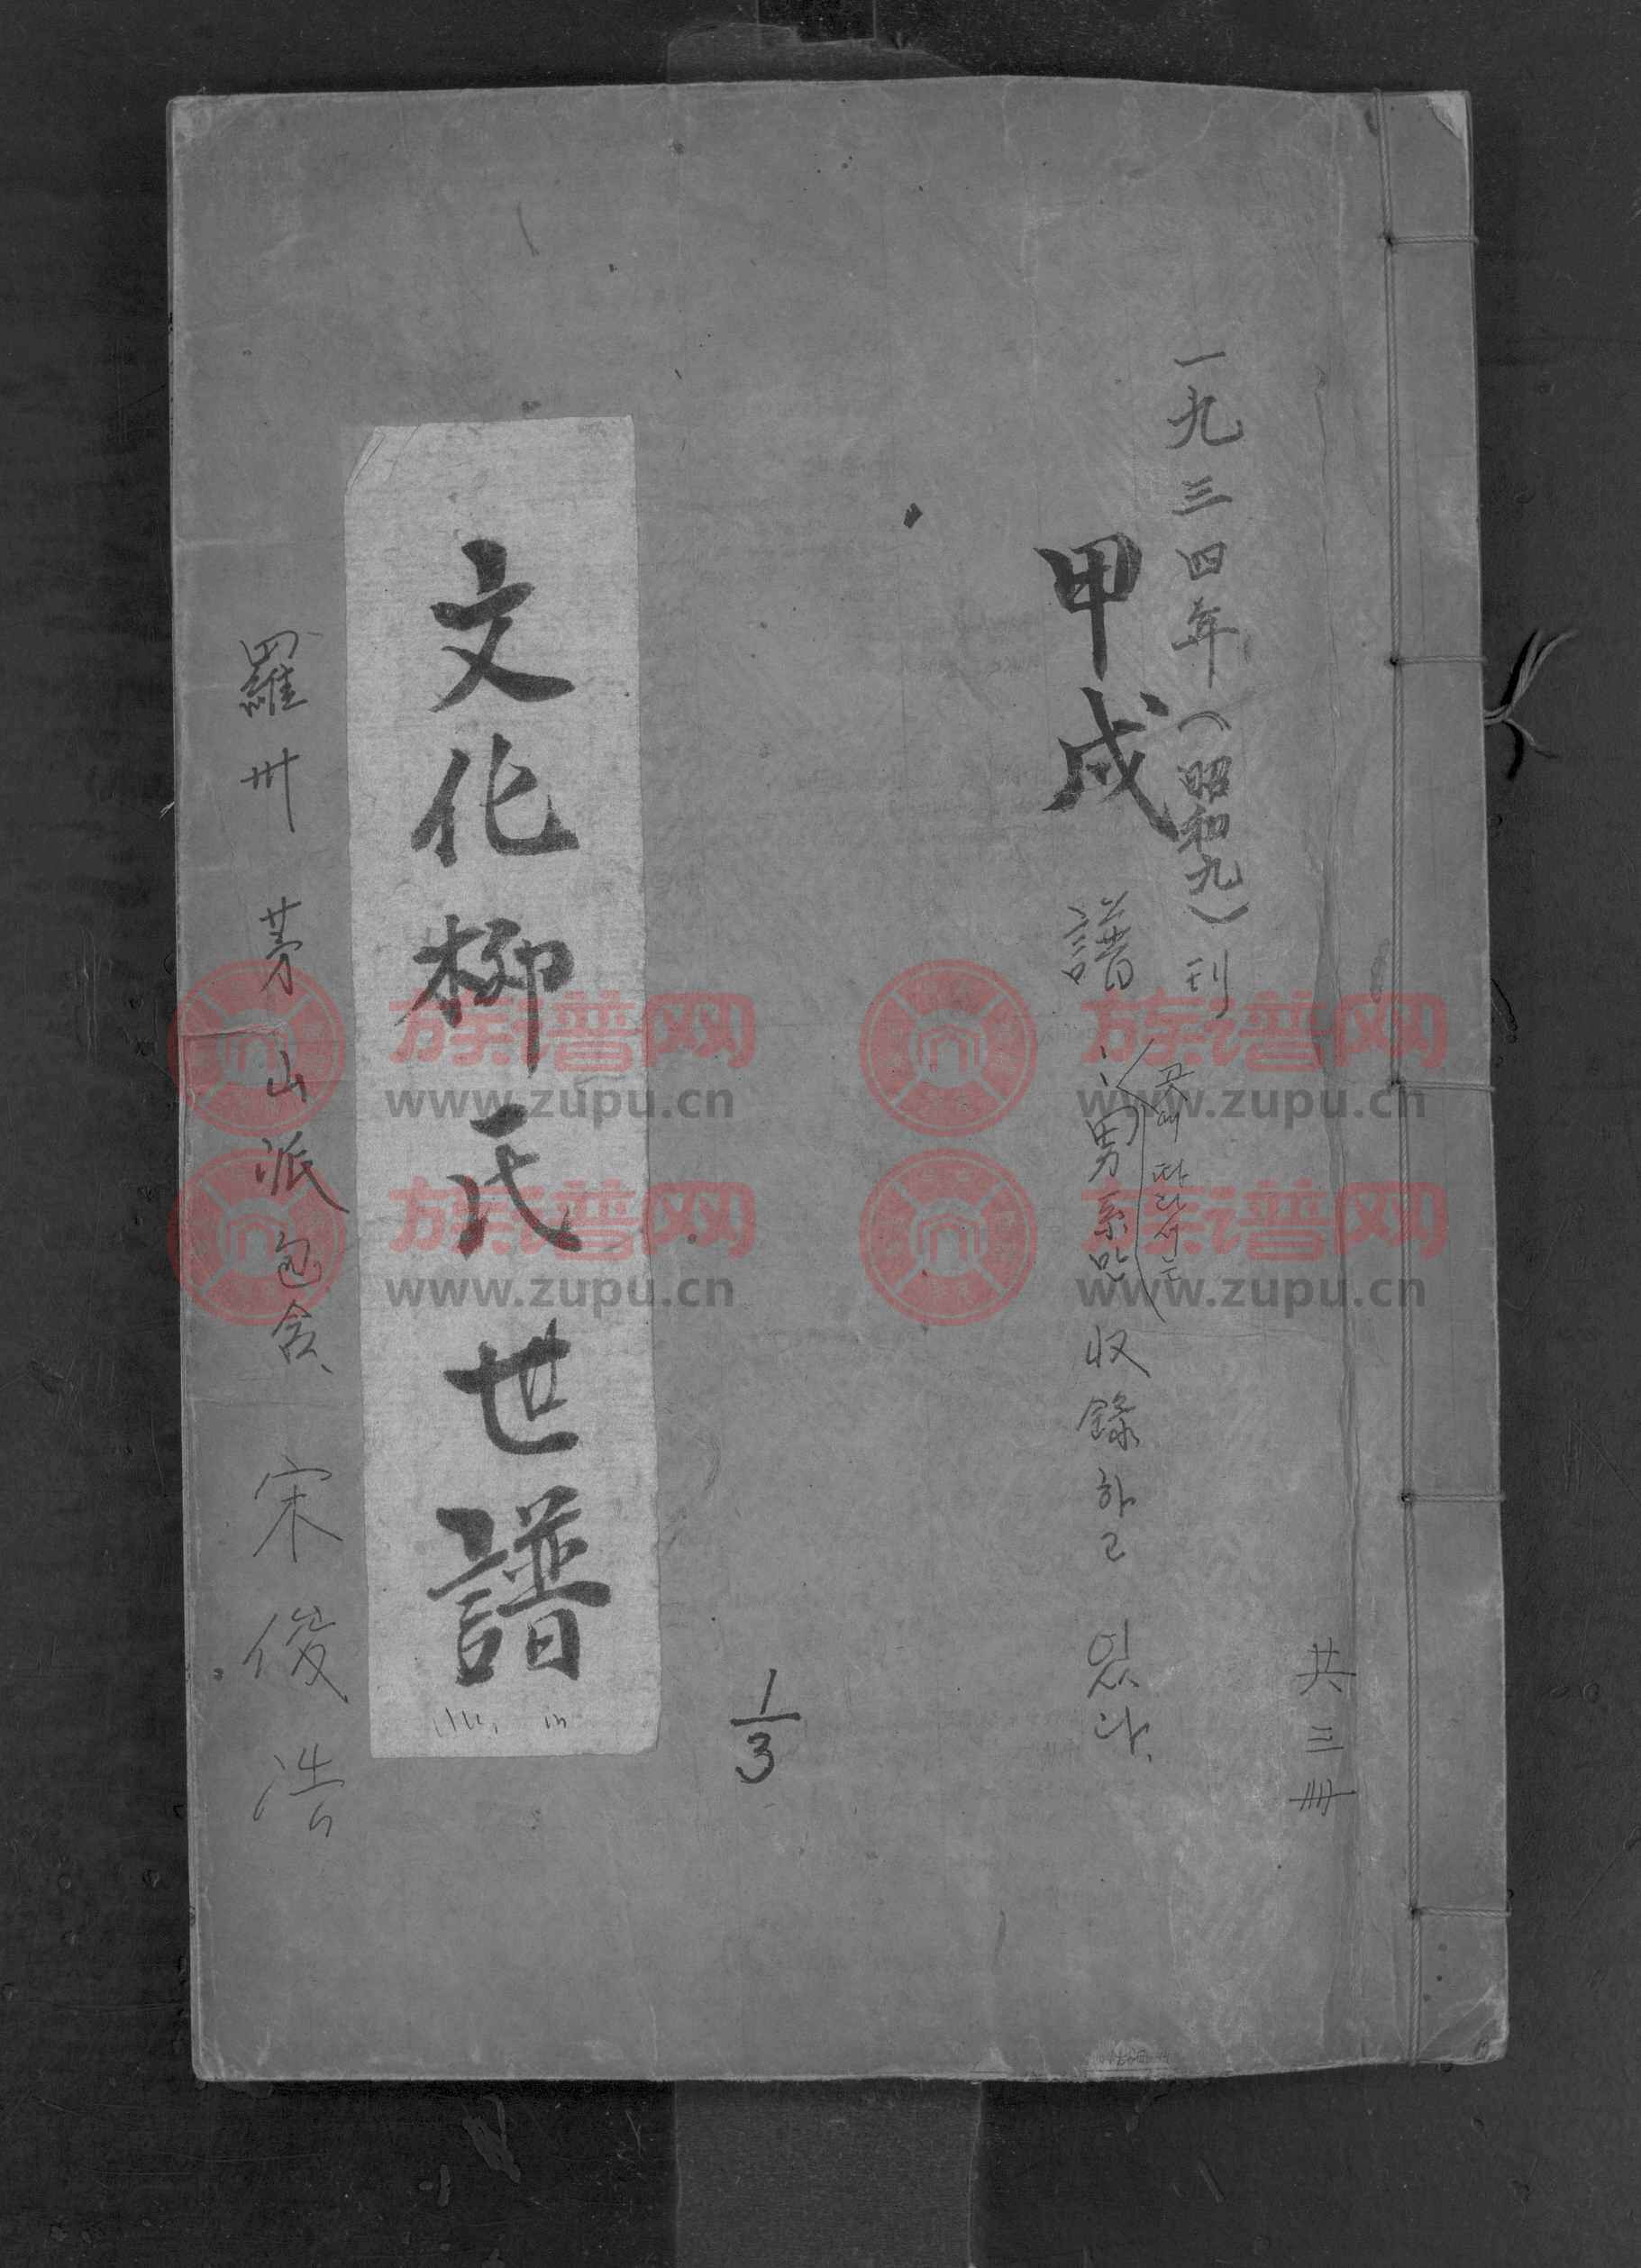 一九三四年(昭和九)刊
甲戌
譜
男系만 收錄하고 있다.
곳에 따라서는
共三冊
1/3
文化柳氏世譜
羅州 茅山派 包含 宋俊浩
族谱网
www.zupu.cn
族谱网
www.zupu.cn
族谱网
www.zupu.cn
族谱网
www.zupu.cn